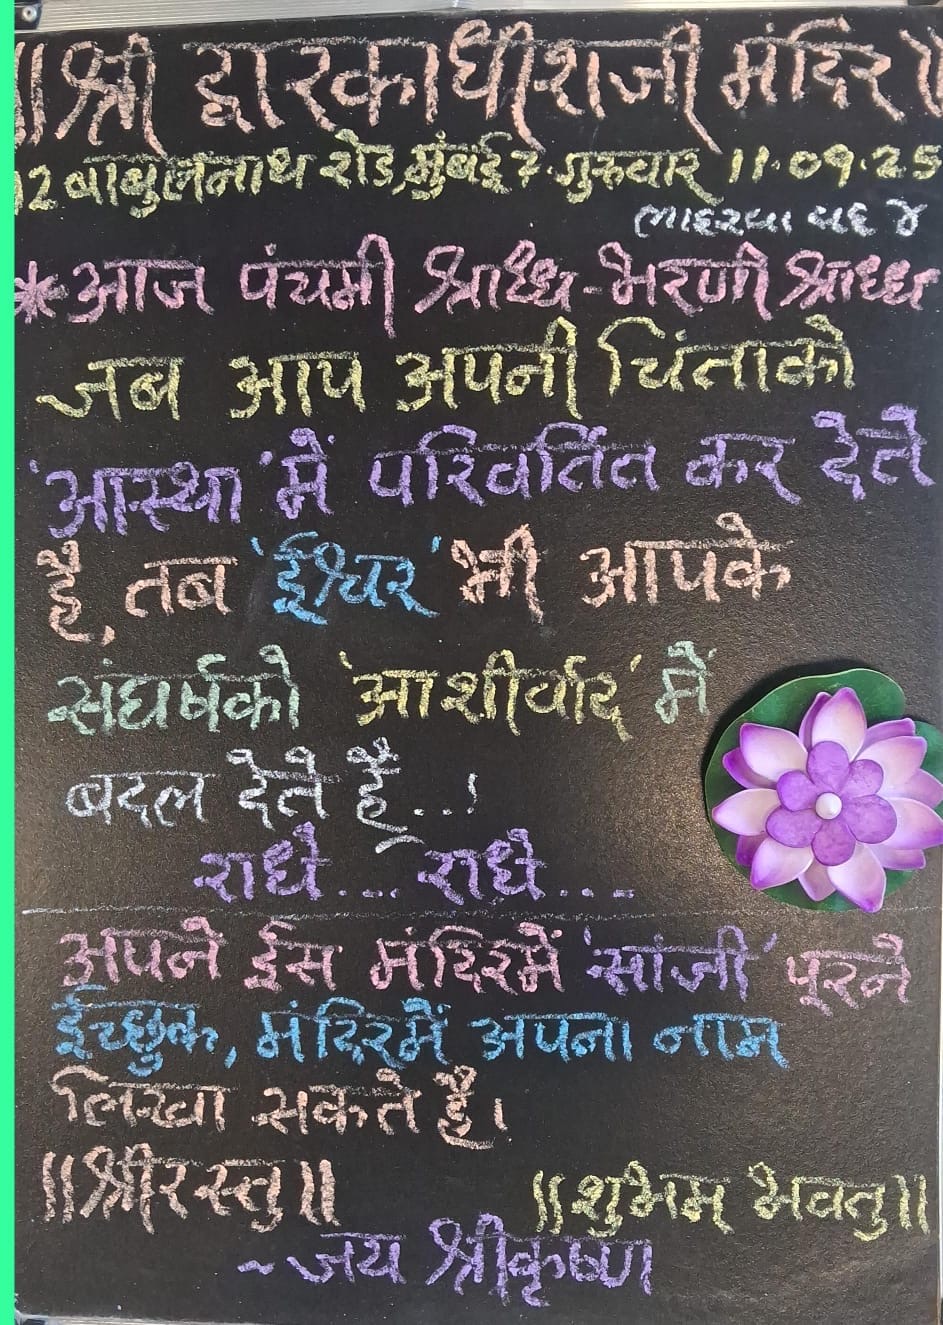 ॥श्री द्वारकाधीशजी मंदिर॥
12 बाबुलनाथ रोड,मुंबई7. गुरुवार 11.09.25
ભાદરવા વદ ૪
*आज पंचमी श्राध्ध-भरणी श्राध्ध
जब आप अपनी चिंताको
'आस्था' में परिवर्तित कर देते
है, तब 'ईश्वर' भी आपके
संघर्षको 'आशीर्वाद' में
बदल देते है..!
राधे... राधे....
अपने ईस मंदिरमें 'सांजी' पूरने
ईच्छुक, मंदिरमें अपना नाम
लिखा सकते है।
॥श्रीरस्तु॥ ॥शुभम् भवतु॥
~जय श्रीकृष्ण